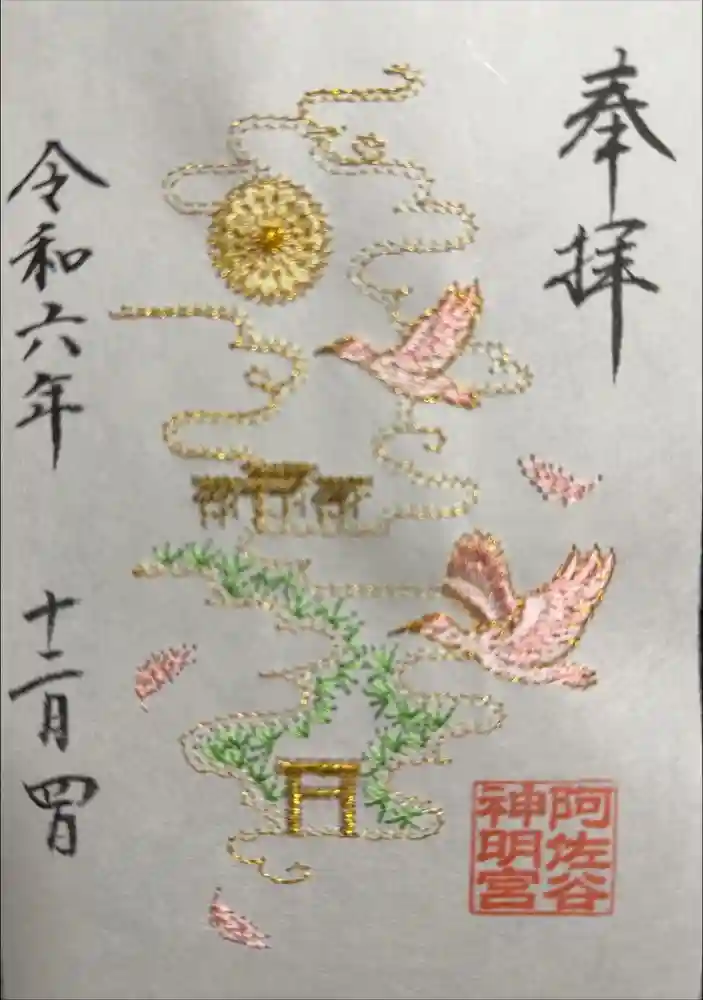 奉拝
阿佐谷
神明宮
令和六年 十二月 四日